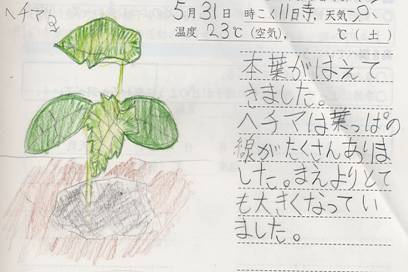 ヘチマ
5月31日 時こく11日寺、天気
温度 23℃(空気)、 ℃(土)
本葉がはえて
きました。
ヘチマは葉っぱの
線がたくさんありま
した。まえよりとて
も大きくなってい
ました。